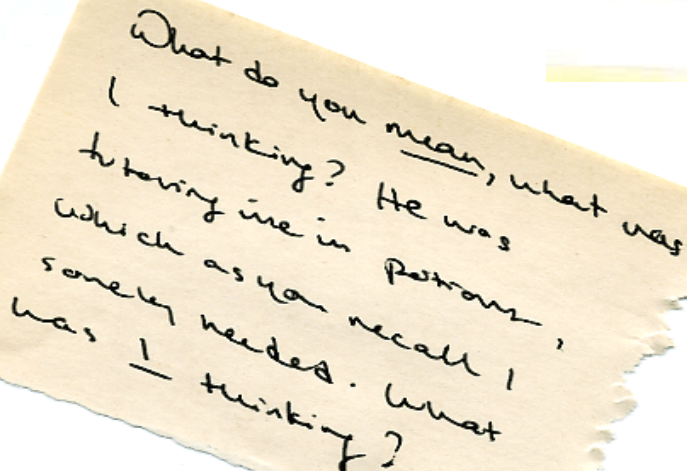 What do you mean, what was
I thinking? He was
tutoring me in Potions,
which as you recall I
sorely needed. What
was I thinking?